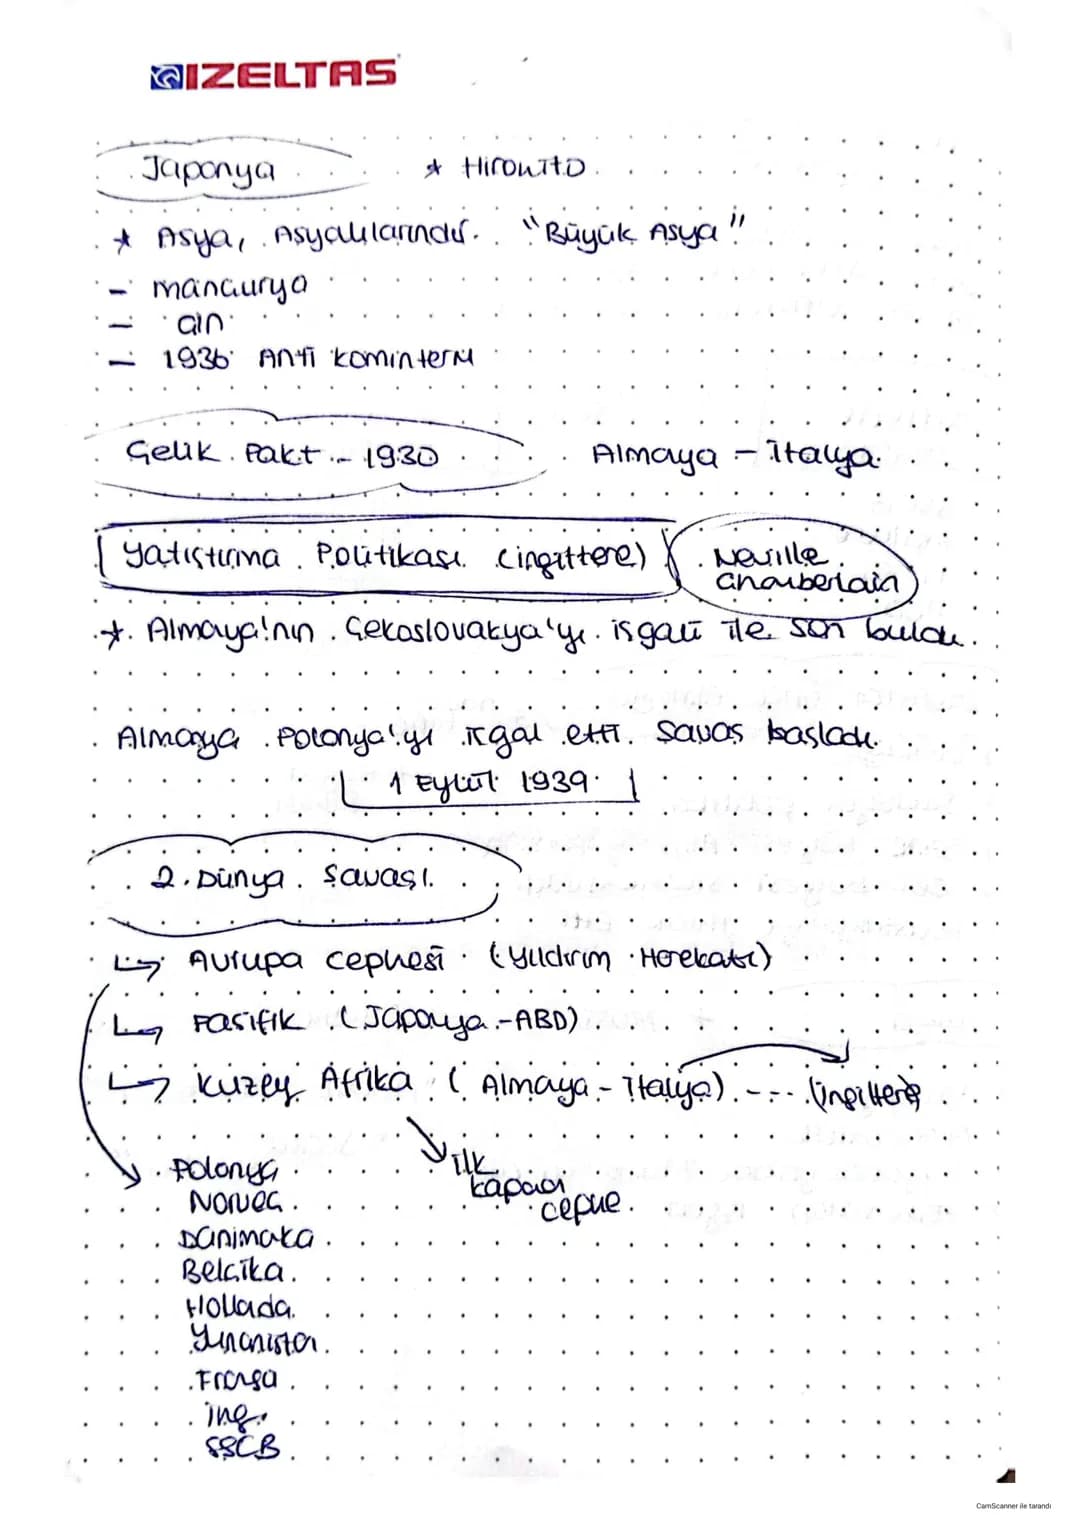 IZELTAS
Japonya * HirowITO
* Asya, Asyalılarındır. "Büyük Asya"
- mançurya
- çin
- 1936 Anti komintern
Çelik Pakt - 1930 Almaya - İtalya
Yatıştırma Politikası (ingiltere) Neville
Chamberlain
* Almaya'nın Çekoslovakya'yı işgali ile son buldu.
Almaya Polonya'yı işgal etti. Savaş başladı.
1 Eylül 1939
2. Dünya Savaşı
Avrupa cephesi (Yıldırım Harekatı)
Pasifik (Japonya - ABD)
Kuzey Afrika (Almaya - İtalya) --- (İngiltere)
Polonya
Norveç
Danimaka
Belçika
Hollada
Yunanistan
Fransa
ing.
SSCB
ilk
kapanan
cephe
CamScanner ile tarandı